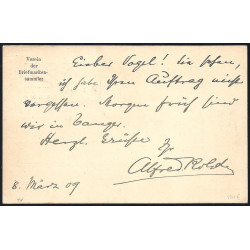 Verein
der
Briefmarken-
sammler.
Lieber Vogel! Sie sehen,
ich habe Ihren Auftrag nicht
vergessen. Morgen früh sind
wir in Tanger.
Herzl. Grüsse Ihr
Alfred
8. März 09